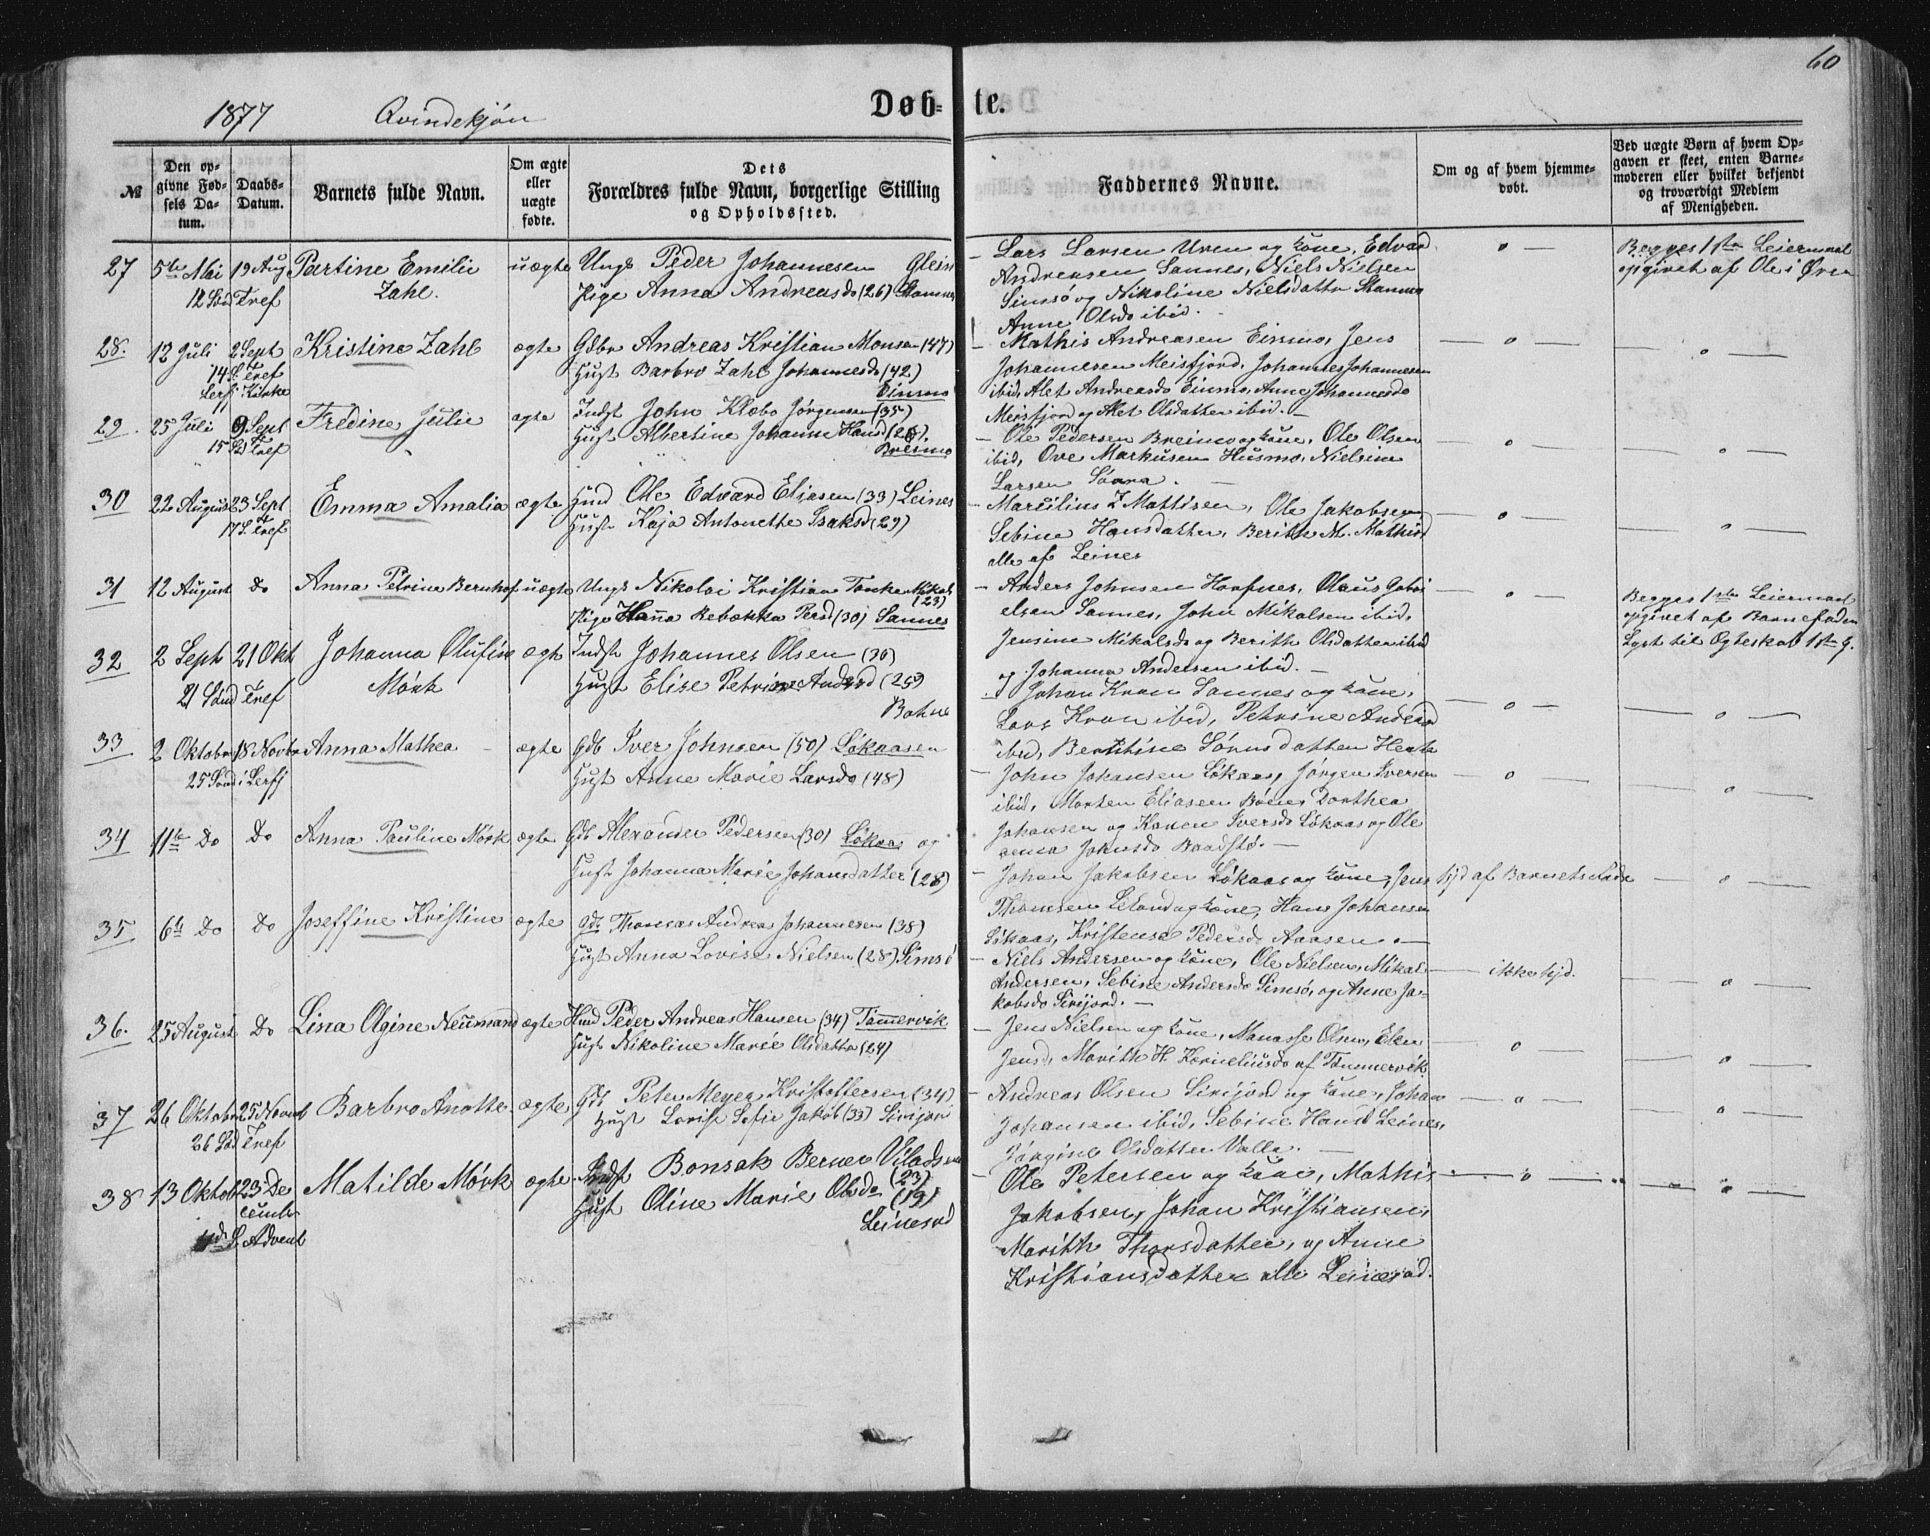 60
1877 Qvindekjøn Døb- te.
№
Den op-
givne Fød-
sels Da-
tum.
Daabs-
Datum.
Barnets fulde Navn.
Om ægte
eller
uægte
fødte.
Dets
Forældres fulde Navn, borgerlige Stilling
og Opholdssted.
Faddernes Navne.
Om og af hvem hjemme-
døbt.
Ved uægte Børn af hvem Op-
gaven er skeet, enten Barne-
moderen eller hvilket bekjendt
og troværdigt Medlem
af Menigheden.
27 5te Mai 19 Aug Partine Emilie uægte Ungk Peder Johannesen Glein
12 Sød Tref Zahl. Pige Anna Andreasd (26)
- Lars Larsen Uren og Kone, Edvard
Andreasen Sannes, Niels Nielsen
Simsø og Nikoline Nielsdatter
Anne Olsd ibid.
o
Begges 1ste Leiermaal
opgivet af Ole i Øren
28. 12 Juli 2 Sept Kristine Zahl ægte Gdbr Andreas Kristian Monsen (47)
14 S. Tref Hust Barbro Zahl Johannesd (42)
Kirke Einmo
- Mathis Andreasen Einmo, Jens
Johannesen Meisfjord, Johannes Johannesen
ibid, Alet Andreasd Einmo, Anne Johannesd
Meisfjord og Alet Olsdatter ibid. -
29. 25 Juli 9 Sept Fredine Julie ægte Indst John Klæbo Jørgensen (35)
15 Sd Tref Hust Albertine Johanna Hansd (26).
Breimo
- Ole Pedersen Breimo og Kone, Ole Olsen
ibid, Ove Markusen Husmo, Nielsine
Larsen
30 22 August 23 Sept Emma Amalia ægte Hmd Ole Edvard Eliasen (33) Leines
17 S. Tref Hust Kaja Antonette Isaksd (29)
- Marcilius Z Mattisen, Ole Jakobsen
Sebine Hansdatter, Berith M. Mathisd
alle af Leines
31 12 August Do Anna Petrine Bernhof uægte Ungk Nikolai Kristian
(23)
Pige Hanna Rebækka Persd (30) Sannes
- Anders Johnsen Haafnes, Olaus Gabri
elsen Sannes, John Mikalsen ibid,
Jensine Mikalsd og Berith Olsdatter ibid
og Johanna Andersen ibid. -
Begges 1ste Leiermaal
opgivet af Barnefaderen
32 2 Sept 21 Okt Johanna Olufine ægte Indst Johannes Olsen (36)
21 Sønd Tref Mørk Hust Elise Petrine Andersd (25)
- Johan Kron Sannes og Kone,
Lars Kron ibid, Petrine Andersd
ibid, Bertine Sørensdatter
33 2 Oktober 18 Novbr Anna Mathea ægte Gdb Iver Johnsen (50) Løkaasen
25 Sønd i Hust Anne Marie Larsd (48)
- John Johansen Løkaas, Jørgen Iversen
ibid, Morten Eliasen Bønes Dorthea
Johansen og Karen Iversd Løkaas og Ole
34 11te Do Do Anna Pauline Mørk ægte Gdb Alexander Pedersen (30) Løkaas og
Hust Johanna Marie Johansdatter (28)
- Johan Jakobsen Løkaas og Kone, Jens
Thomsen Leland og Kone, Hans Johansen
Løkaas, Kristense Pedersd Aaasen. -
hjd af Barnets Fader
35 6te Do Do Joseffine Kristine ægte Gdb Thomas Andreas Johannesen (38)
Hust Anna Lovise Nielsen (28) Simsø
- Niels Andersen og Kone, Ole Nielsen, Mikal
Andersen, Sebine Andersd Simsø, og Anne Ja-
kobsd Sirijord. -
ikke hjd.
36. 25 August Do Lina Olgine Neumand ægte Hmd Peder Andreas Hansen (34) Tømmervik
Hust Nikoline Marie Olsdatter (24)
- Jens Nielsen og Kone, Manasse Olsen, Elen
Jensd, Marith H. Korneliusd af Tømmervik.
37 26 Oktober 25 Novemb Barbro Anette ægte Gdb Peter Meyer Kristoffersen (34)
26 Sød Tref Hust Lovise Sofie Jakob (33) Sirijord
- Andreas Olsen Sirijord og Kone, Johan
Johansen ibid, Sebine Hansd Leines,
Jørgine Olsdatter Valla. -
38 13 Oktob 23 De Matilde Mørk ægte Indst Bonsak Berner Viladsen
cember (23)
Hust Oline Marie Olsd (19)
4de S. Advent Leinesød
- Ole Petersen og Kone, Mathis
Jakobsen, Johan Kristiansen,
Marith Thorsdatter, og Anne
Kristiansdatter alle Leinesød.